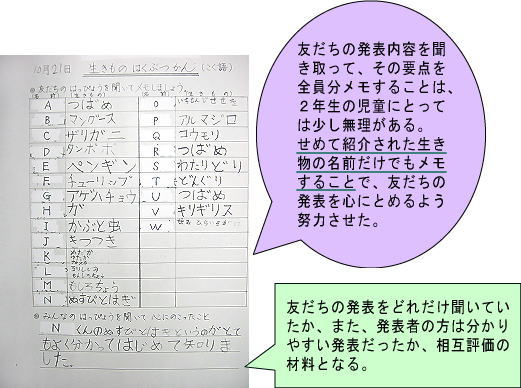 10月21日 生きもの はくぶつかん (こく語)
◎友だちの はっぴょうを聞いて メモしましょう。
A つばめ
B マングース
C ザリガニ
D タンポポ
E ペンギン
F チューリップ
G アゲハチョウ
H ガ
I かぶと虫
J きつつき
K めだか
L
M もんしろちょう
N ぬすびとはぎ
O
P アルマジロ
Q コウモリ
R つばめ
S わたりどり
T どんぐり
U つばめ
V キリギリス
W
◎みんなの はっぴょうを 聞いて 心にのこったこと
N くんのぬすびとはぎというのがとて
もよく分かってはじめて知りま
した。
友だちの発表内容を聞
き取って、その要点を
全員分メモすることは、
２年生の児童にとって
は少し無理がある。
せめて紹介された生き
物の名前だけでもメモ
することで、友だちの
発表を心にとめるよう
努力させた。
友だちの発表をどれだけ聞いてい
たか、また、発表者の方は分かり
やすい発表だったか、相互評価の
材料となる。